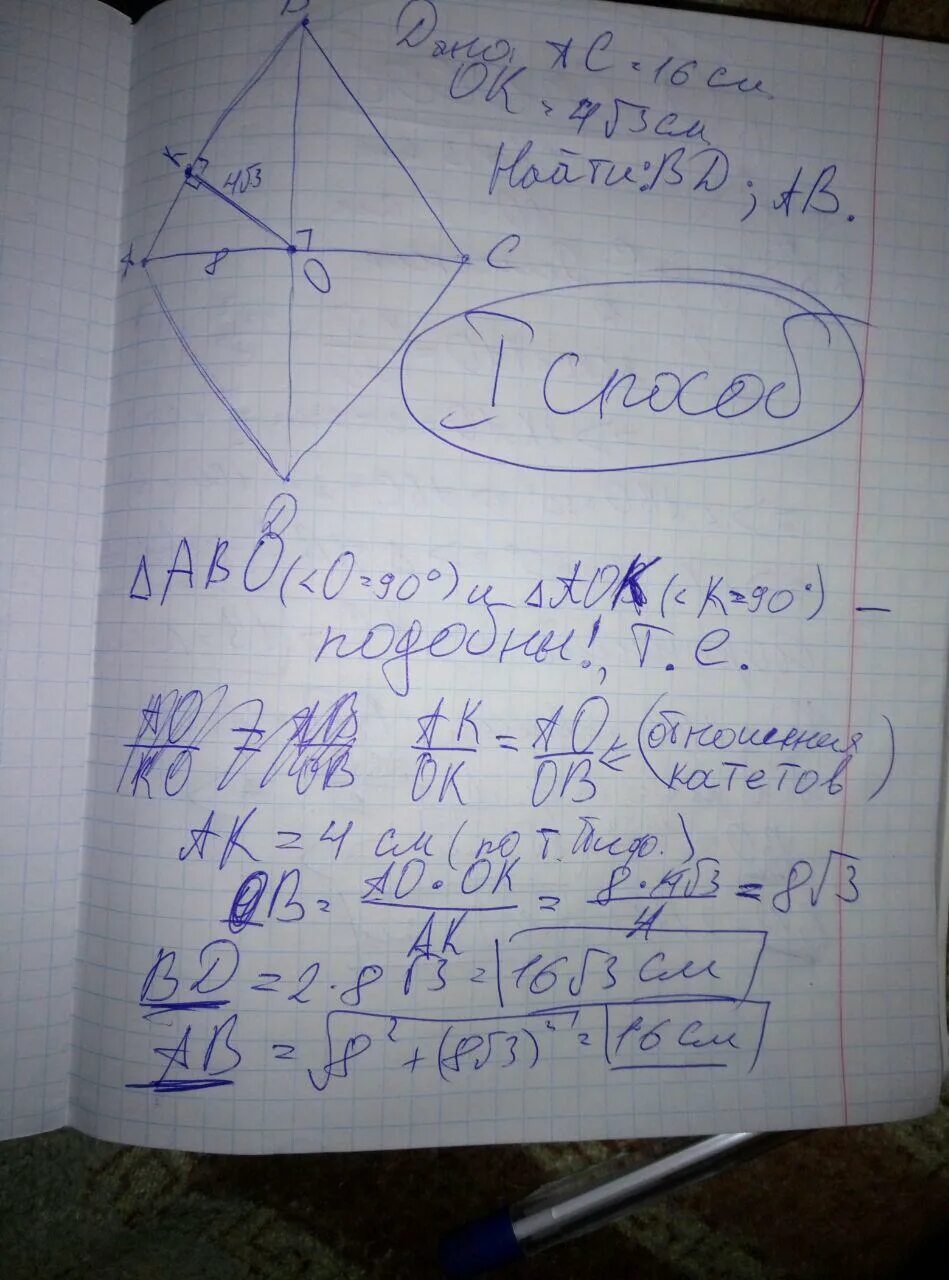 Дано: AC = 16 см
OK = 4√3 см
Найти: BD; AB.
B
K
4√3
A
8
O
C
I способ
D
△ABO (<O=90°) и △AOK (<K=90°) —
подобны!, т.е.
AO/KO = AB/OB AK/OK = AO/OB ⇐ (отношения катетов)
AK = 4 см (по т. Пифо.)
OB = AO·OK/AK = 8·4√3/4 = 8√3
BD = 2·8√3 = 16√3 см
AB = √8²+(8√3)² = 16 см